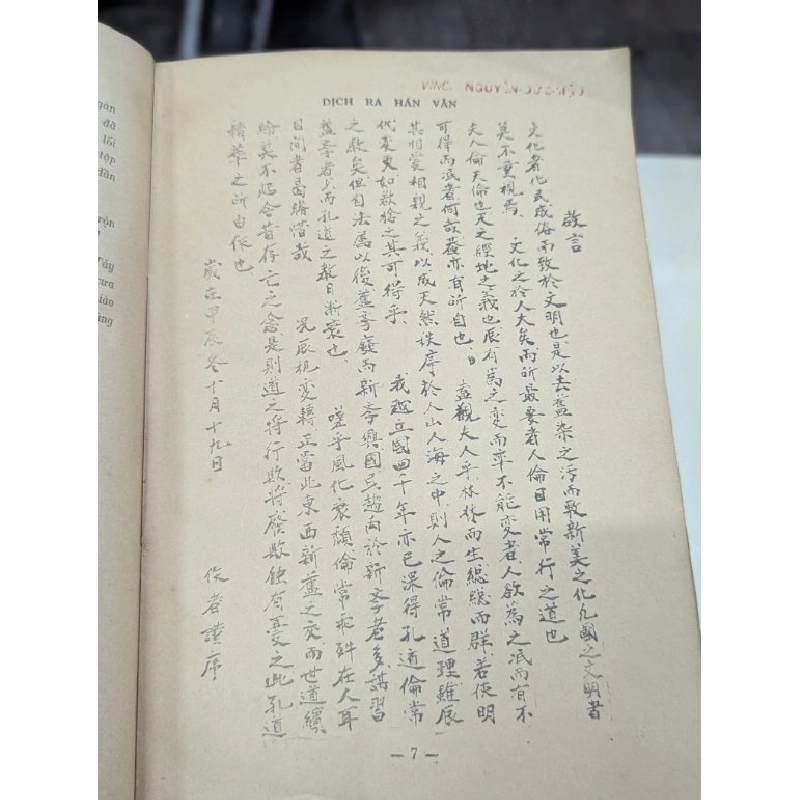 gọn
đã
lối
tập
Hán
Tây
xưa
giáo
VĨNH
DỊCH RA HÁN VĂN
啟言
文化者化民成俗而致於文明也是以去舊染之污而致新美之化凡國之文明者
莫不重視焉 文化之於人大矣而所最要者人倫日用常行之道也
夫人倫天倫也天之經地之義也辰有為之變而率不能變者人欲為之泯而有不
可得而泯者何哉蓋亦有所自也 盍觀夫人乎林林而生總總而群若使明
其相愛相親之義以成天然秩序於人山人海之中則人之倫常道理雖辰
代变更如欲捨之其可得乎 我越立國四千年亦已深得孔道倫常
之教矣但自法屬以後舊孛廢而新孛興國民趨向於新孛者多講習
舊孛者少而孔道之教日漸衰也 嗟乎風化衰頹倫常
在人耳
目間者曷勝惜哉 況辰机變轉正當此東西新舊之交而世道
紛
今昔存亡之念是則道之將行欤將廢欤
有憂之此孔道
精華之所由作也
歲在甲辰冬十月十九日
作者謹序
— 7 —